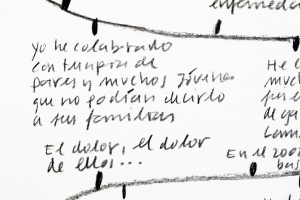 enfermeda
yo he colabrado
con tunpa de
pares y muchos jóvenes
que no podían decirlo
a sus familias
El dolor, el dolor
de ellos...
He
la
de
En el 200